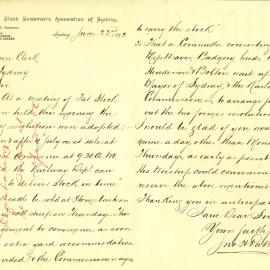 Stock Salesmen's Association of Sydney.
Sydney, June 22nd 1892
Clerk
Sydney
At a meeting of Fat Stock
held this morning the
resolution were adopted:-
after 1st July next sale at
commence at 9.30 A.M.
the Railway Dept can
to deliver stock in time"
be sold at Homebush on
sheep on Thursday. The
to commence as soon
extra yard accommodation
the Commissioners agree
to carry the stock"
3. That a Committee consisting
Messrs Weaver, Badgery,
Henderson & Bolton wait up
Mayor of Sydney & the Rail
Commissioners, to arrange
out the two former resolution
I would be glad if you
name a day other than Mon
Thursday, as early as possible
His Worship could convenien
receive the above mentione
Thanking you in anticipa
I am Dear Sir
Yours faith